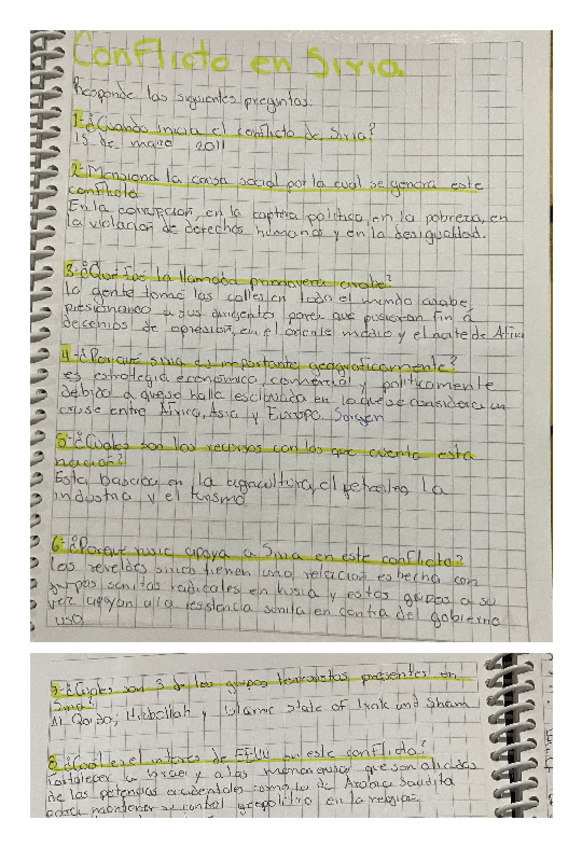 Conflicto en Siria
Responde las siguientes preguntas.
1-¿Cuando inicia el conflicto de Siria?
15 de marzo 2011
2-Mensiona la causa social por la cual se genera este
conflicto
En la corrupcion, en la captura politica, en la pobreza, en
la violacion de derechos humanos y en la desigualdad.
3-¿Que fue la llamada primavera arabe?
la gente tomo las calles en todo el mundo arabe,
presionando a sus dirigentes para que pusieran fin a
decenios de opresion, en el oriente medio y el norte de Africa
4-¿Porque siria es importante geograficamente?
es estrategia economico, comercial y politicamente
debido a que se halla en lo que se considera un
cruse entre Africa, Asia y Europa.
5-¿Cuales son los recursos con los que cuenta esta
nacion?
Esta basada en la agricultura, el petroleo la
industria y el turismo
6-¿Porque rusia apoya a Siria en este conflicto?
los reveldes sirios tienen una relacion estrecha con
grupos sunitas radicales en Rusia y estos grupos a su
vez apoyan a la resistencia sunita en contra del gobierno
ruso
7-¿Cuales son 3 de los grupos terroristas presentes en
Siria?
Al Qaida, Hizbollah y Islamic State of Irak and Sham
8-¿Cual es el interes de EEUU en este conflicto?
Fortalecer a Israel y a las monarquias que son aliadas
de las potencias occidentales como la de Arabia Saudita
para mantener su control geopolitico en la religion.